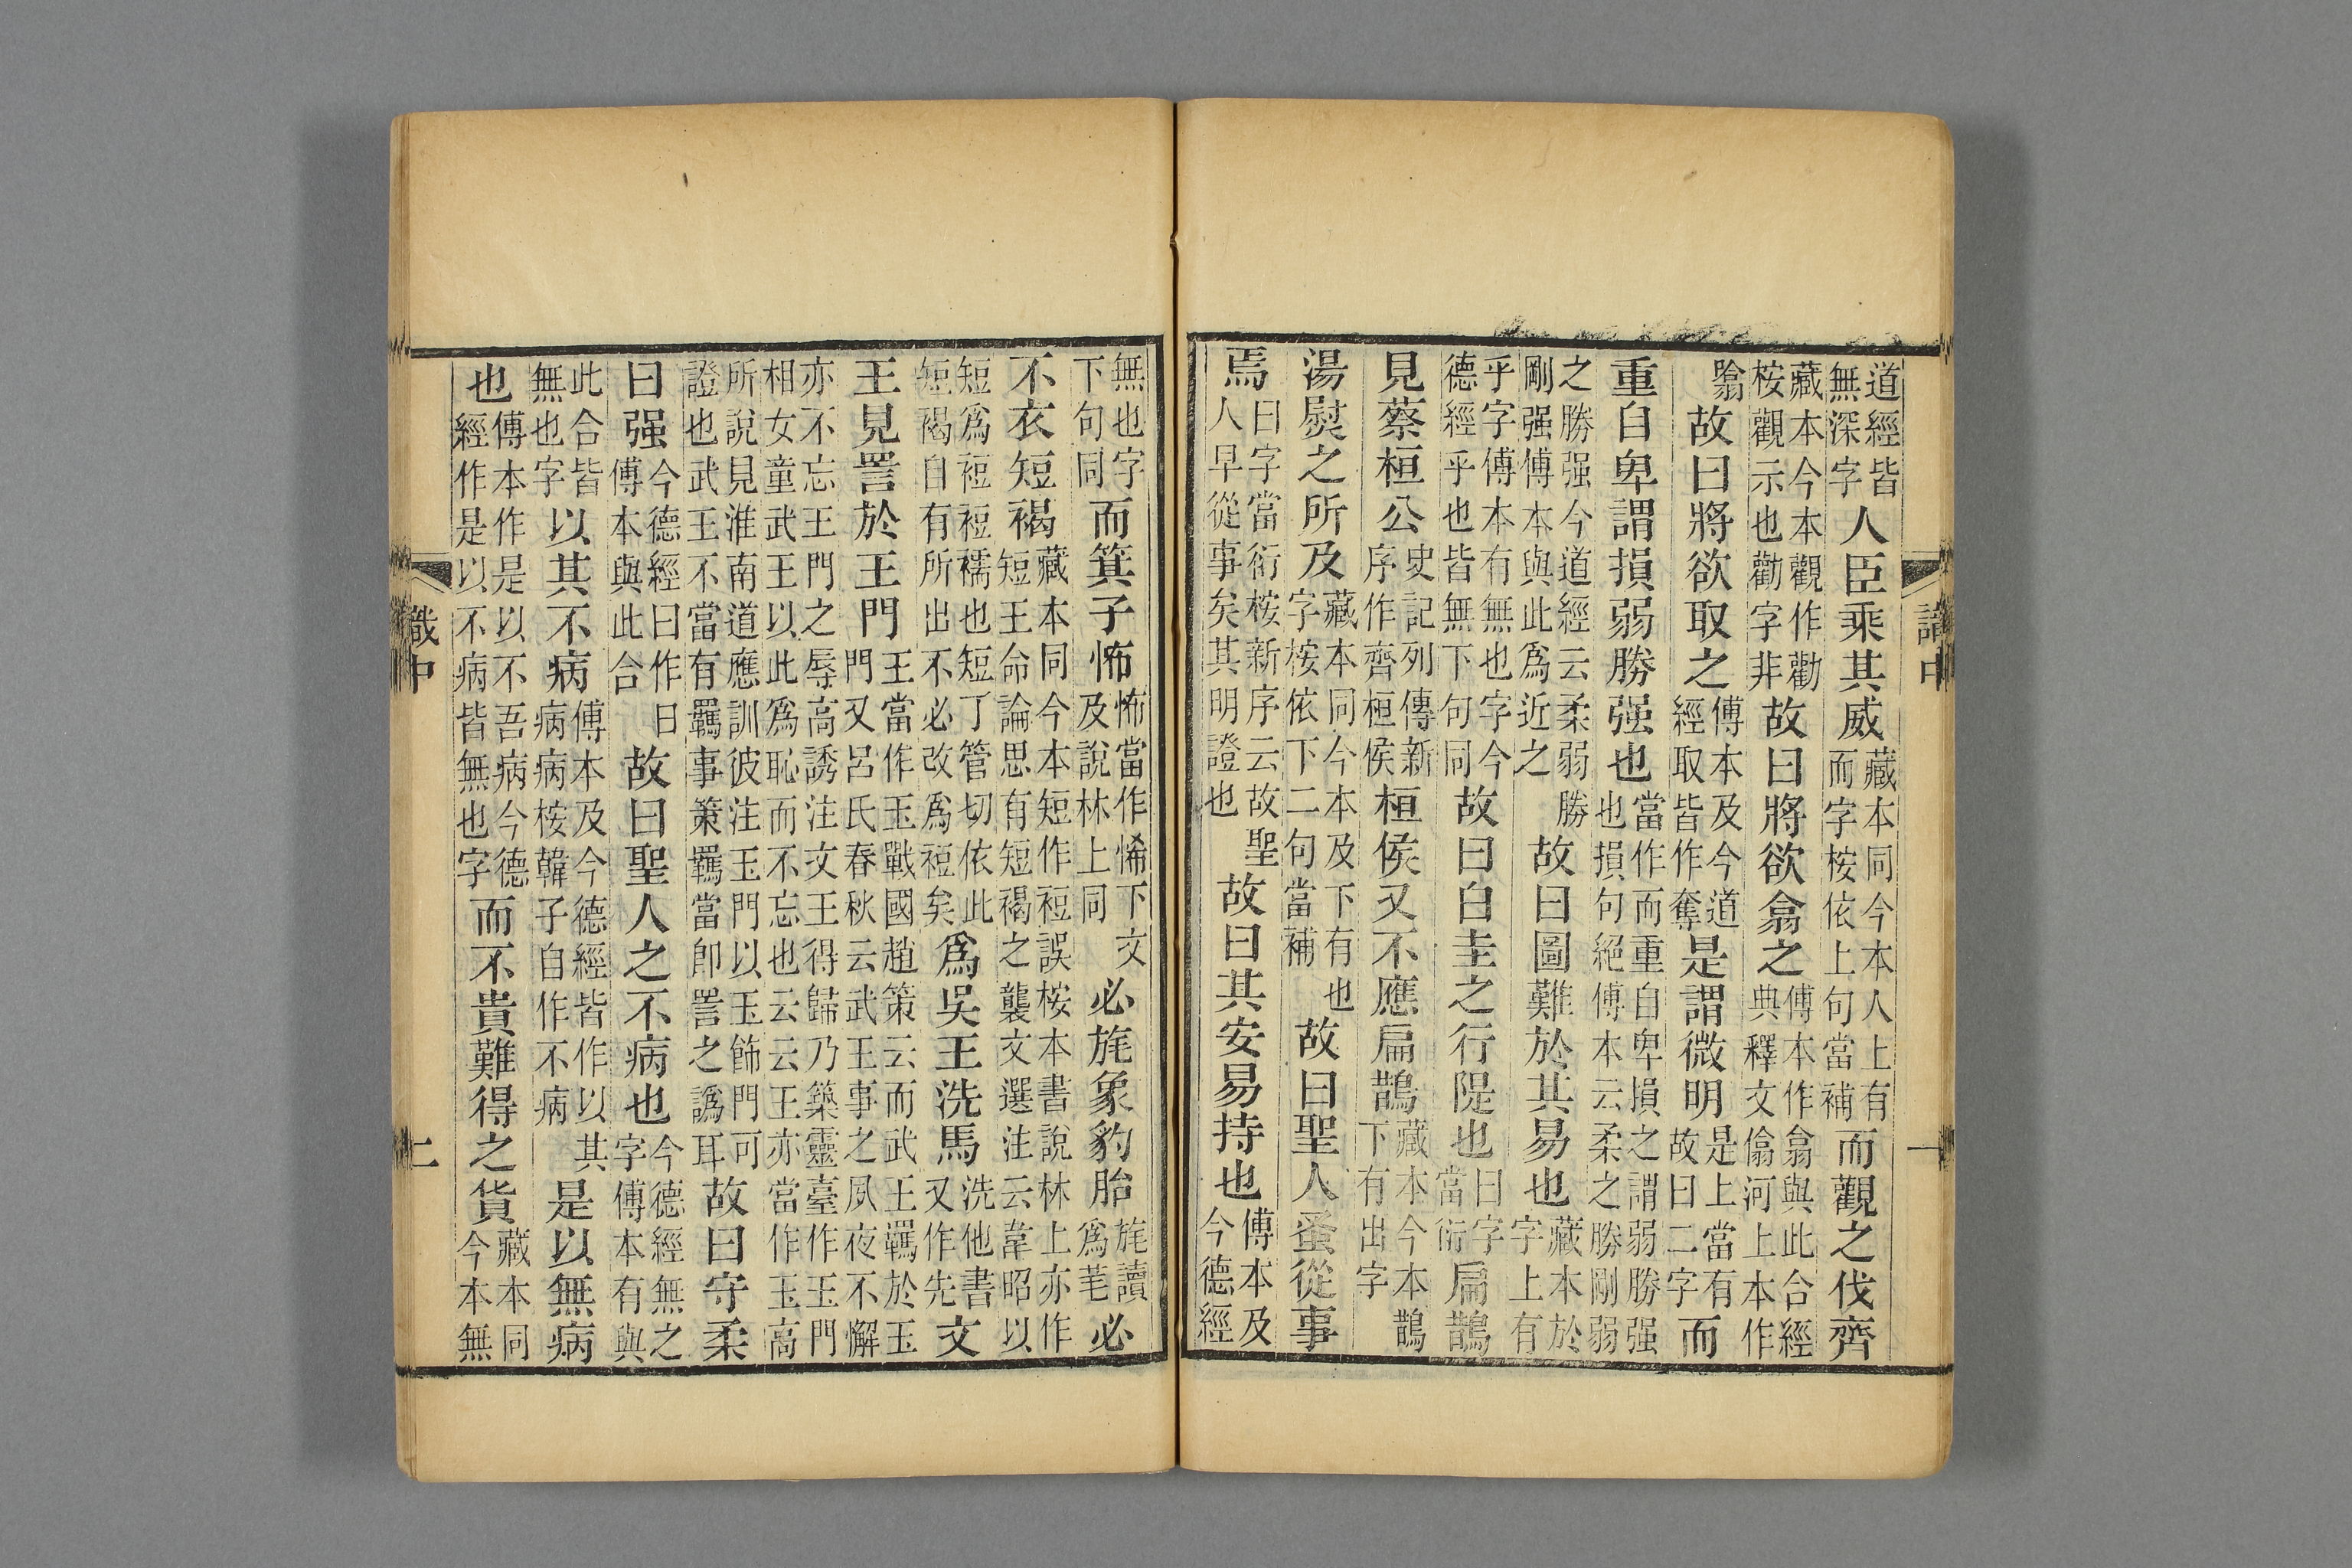 道經皆
無深字
人臣乘其威
藏本同今本人上有
而字桉依上句當補
而觀之伐齊
藏本今本觀作勸
桉觀示也勸字非
故曰將欲翕之
傅本作翕與此合經
典釋文㒆河上本作
噏
故曰將欲取之
傅本及今道
經取皆作奪
是謂微明
是上當有
故曰二字
而
重自卑謂損弱勝强也
當作而重自卑損之謂弱勝强
也損句絕傅本云柔之勝剛弱
之勝强今道經云柔弱勝
剛强傅本與此爲近之
故曰圖難於其易也
藏本於
字上有
乎字傅本有無也字今
德經乎也皆無下句同
故曰白圭之行隄也
曰字
當衍
扁鵲
見蔡桓公
史記列傳新
序作齊桓侯
桓侯又不應扁鵲
藏本今本鵲
下有出字
湯熨之所及
藏本同今本及下有也
字桉依下二句當補
故曰聖人蚤從事
焉
曰字當衍桉新序云故聖
人早從事矣其明證也
故曰其安易持也
傅本及
今德經
識中
一
無也字
下句同
而箕子怖
怖當作悕下文
及說林上同
必旄象豹胎
旄讀
爲芼
必
不衣短褐
藏本同今本短作裋誤桉本書說林上亦作
短王命論思有短褐之襲文選注云韋昭以
短爲裋裋襦也短丁管切依此
短褐自有所出不必改爲裋矣
爲吳王洗馬
洗他書
又作先
文
王見詈於王門
王當作玉戰國趙策云而武王羈於玉
門又呂氏春秋云武王事之夙夜不懈
亦不忘王門之辱高誘注文王得歸乃築靈臺作玉門
相女童武王以此爲恥而不忘也云云王亦當作玉高
所說見淮南道應訓彼注玉門以玉飾門可
證也武王不當有羈事策羈當卽詈之譌耳
故曰守柔
曰强
今德經曰作日
傅本與此合
故曰聖人之不病也
今德經無之
字傅本有與
此合皆
無也字
以其不病
傅本及今德經皆作以其
病病桉韓子自作不病
是以無病
也
傅本作是以不吾病今德
經作是以不病皆無也字
而不貴難得之貨
藏本同
今本無
識中
二